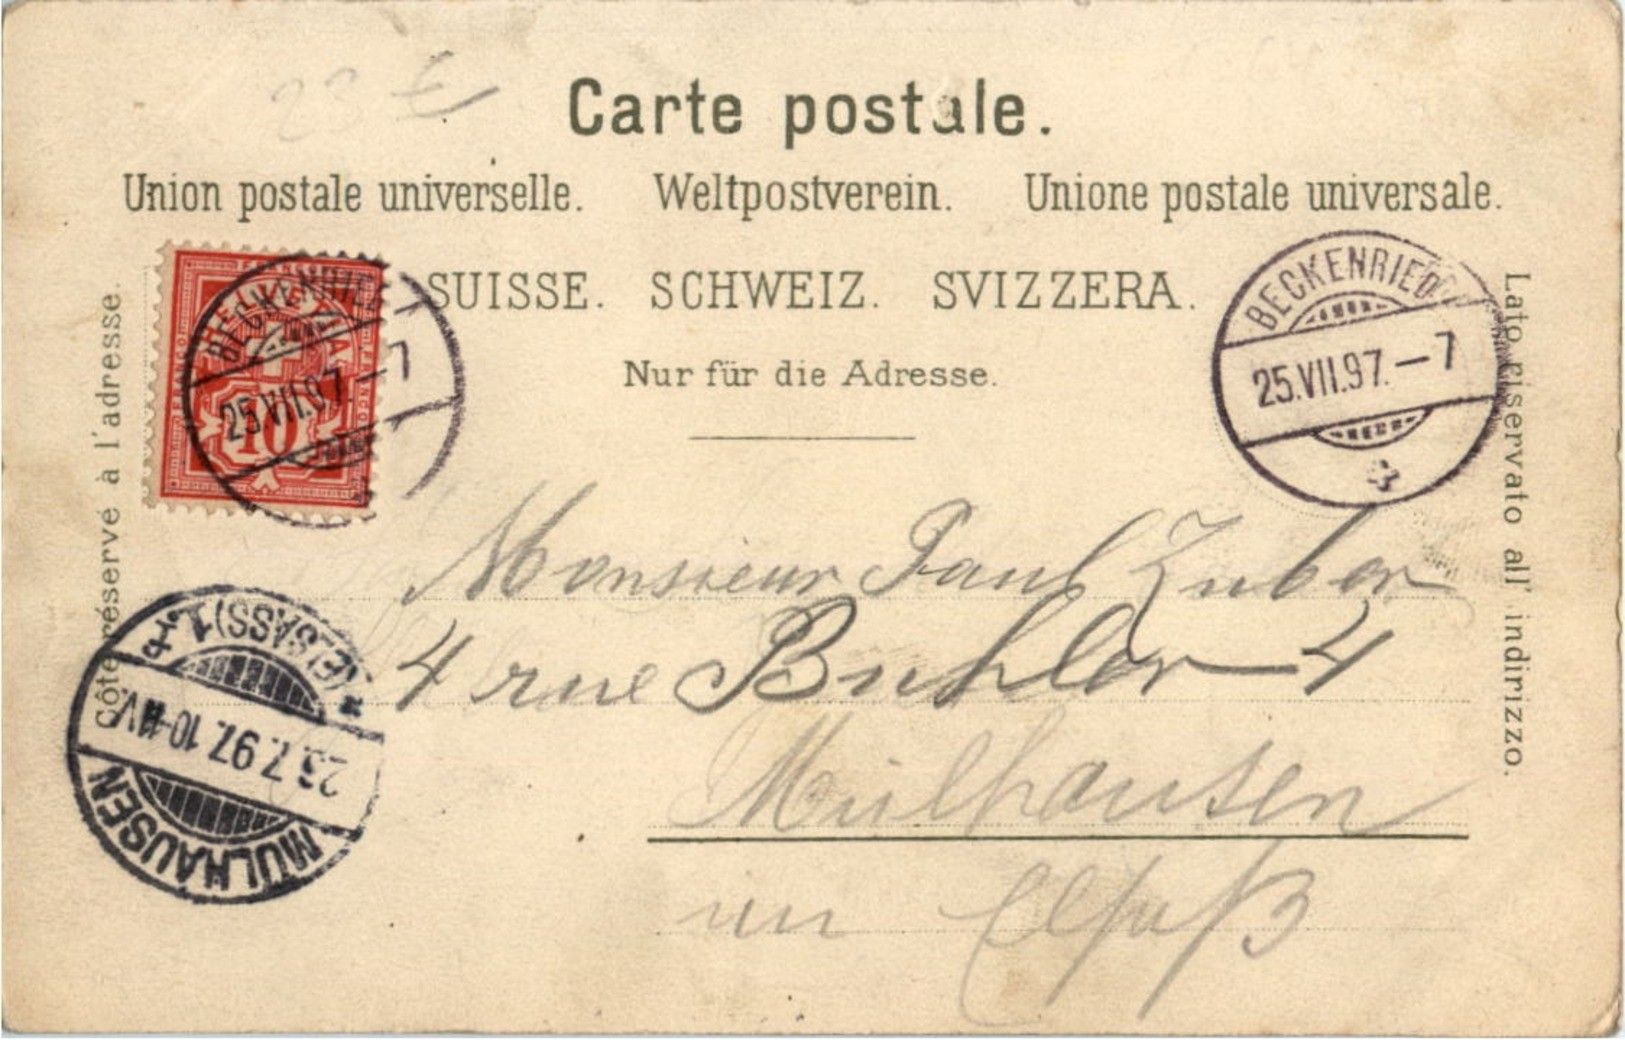 23 €
Carte postale.
Union postale universelle. Weltpostverein. Unione postale universale.
SUISSE. SCHWEIZ. SVIZZERA.
Nur für die Adresse.
Côté réservé à l'adresse.
Lato riservato all' indirizzo.
HELVETIA
FRANCO
10
BECKENRIED
25.VII.97.–7
BECKENRIED
25.VII.97.–7
MÜLHAUSEN
7.97. 10-11V.
(ELSASS) 1
Monsieur Paul Zuber
4 rue Buhler 4
Mülhausen
im Elsaß